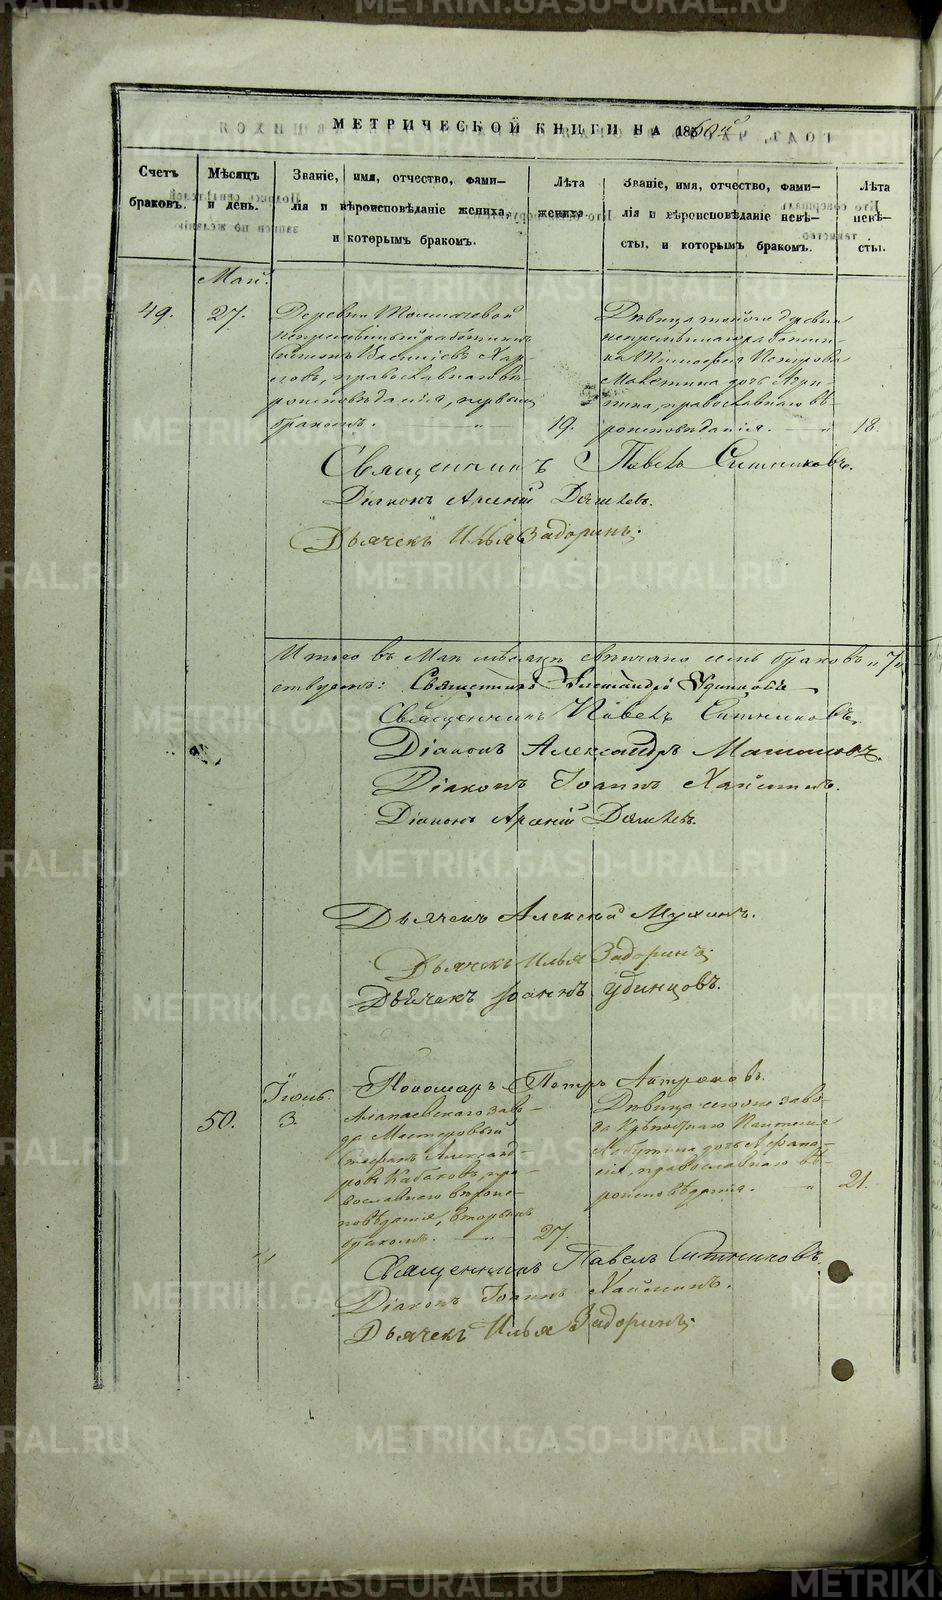 МЕТРИЧЕСКОЙ КНИГИ НА 1860й
Счетъ браковъ.
Мѣсяцъ и день.
Званіе, имя, отчество, фами-
лія и вѣроисповѣданіе жениха,
и которымъ бракомъ.
Лѣта жениха
Званіе, имя, отчество, фами-
лія и вѣроисповѣданіе невѣ-
сты, и которымъ бракомъ.
Лѣта невѣ-
сты.
Май.
49.
27.
Деревни
непремѣнный работникъ
Василіевъ Хар-
ловъ, православнаго вѣ-
роисповѣданія, первымъ
бракомъ. 19.
Дѣвица той же деревни
непремѣннаго работни-
ка Петрова
дочь Агри-
пина, православнаго вѣ-
роисповѣданія. 18.
Священникъ Павелъ Ситниковъ.
Діаконъ Арсеній
Дьячекъ Илья Задоринъ.
Итого въ Маѣ мѣсяцѣ вѣнчано семь браковъ "7"
Священникъ Александръ Удинцовъ
Священникъ Павелъ Ситниковъ.
Діаконъ Александръ
Діаконъ Іоаннъ
Діаконъ Арсеній
Дьячекъ Алексѣй Мухинъ.
Дьячекъ Илья Задоринъ.
Дьячекъ Іоаннъ Удинцовъ.
Пономарь Петръ
Іюнь.
50.
3.
Алапаевскаго заво-
да Мастеровый
Стефанъ Александ-
ровъ Кабаковъ, пра-
вославнаго вѣроис-
повѣданія, вторымъ
бракомъ. 27.
Дѣвица того же заво-
да
дочь Афана-
сія, православнаго вѣ-
роисповѣданія. 21.
Священникъ Павелъ Ситниковъ.
Діаконъ Іоаннъ
Дьячекъ Илья Задоринъ.
METRIKI.GASO-URAL.RU